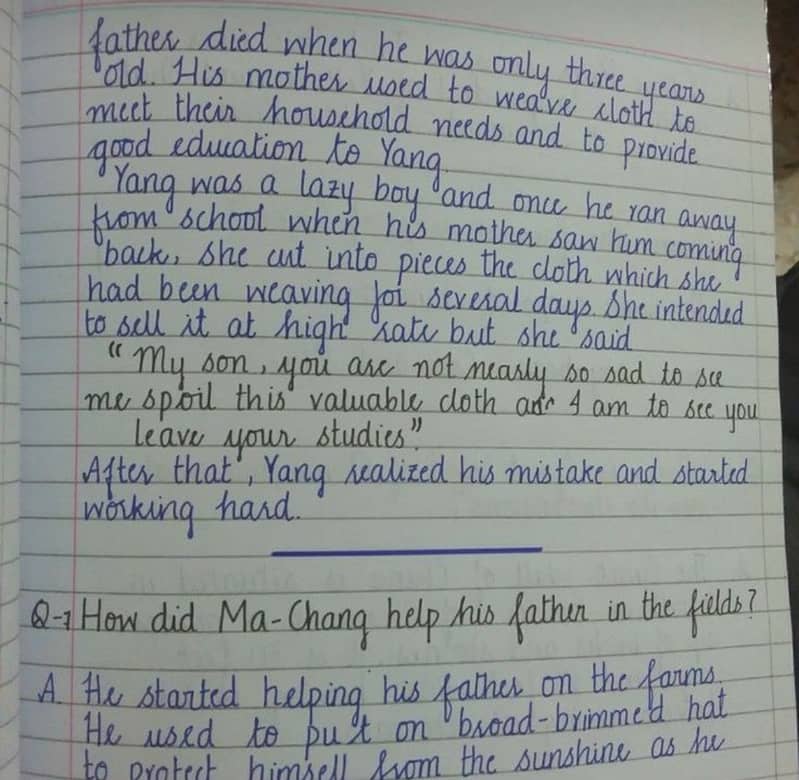 father died when he was only three years
old. His mother used to weave cloth to
meet their household needs and to provide
good education to Yang.
Yang was a lazy boy and once he ran away
from school when his mother saw him coming
back, she cut into pieces the cloth which she
had been weaving for several days. She intended
to sell it at high rate but she said
"My son, you are not nearly so sad to see
me spoil this valuable cloth as I am to see you
leave your studies"
After that, Yang realized his mistake and started
working hard.
Q-1 How did Ma-Chang help his father in the fields?
A. He started helping his father on the farms.
He used to put on broad-brimmed hat
to protect himself from the sunshine as he